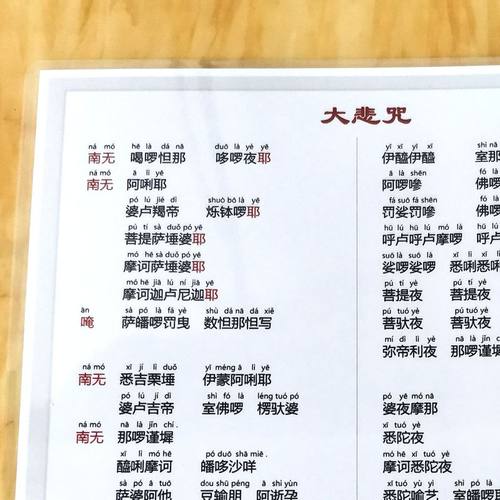 大悲咒
ná mó hē lā dá nà duō là yè yē
南无 喝啰怛那 哆啰夜耶
ná mó ā lì yē
南无 阿唎耶
pó lú jié dì shuò bō là yē
婆卢羯帝 烁钵啰耶
pú tí sà duǒ pó yē
菩提萨埵婆耶
mó hē sà duǒ pó yē
摩诃萨埵婆耶
mó hē jiā lú ní jiā yē
摩诃迦卢尼迦耶
ǎn sà pó là fá yè shù dá nà dá xiě
唵 萨皤啰罚曳 数怛那怛写
ná mó xī jí lì duǒ yī méng ā lì yē
南无 悉吉栗埵 伊蒙阿唎耶
pó lú jí dì shì fó là léng tuó pó
婆卢吉帝 室佛啰 楞驮婆
ná mó nà là jǐn chí
南无 那啰谨墀
xī lì mó hē pó duō shā miē
醯唎摩诃 皤哆沙咩
sà pó ā tuō dòu shū péng ā shì yùn
萨婆阿他 豆输朋 阿逝孕
yī xī yī xī shì nà
伊醯伊醯 室那
ā là shēn fó là
阿啰嘇 佛啰
fá suō fá shēn
罚娑罚嘇 佛啰
hū lú hū lú mó là
呼卢呼卢摩啰 呼
suō là suō là xī lì xī lì
娑啰娑啰 悉唎悉唎
pú tí yè pú tí yè
菩提夜 菩提夜
pú tuó yè pú tuó yè
菩驮夜 菩驮夜
mí dì lì yè nà là jǐn
弥帝利夜 那啰谨
pó yè mó nà
婆夜摩那
xī tuó yè
悉陀夜
mó hē xī tuó yè
摩诃悉陀夜
xī tuó yù yì shì
悉陀喻艺 室